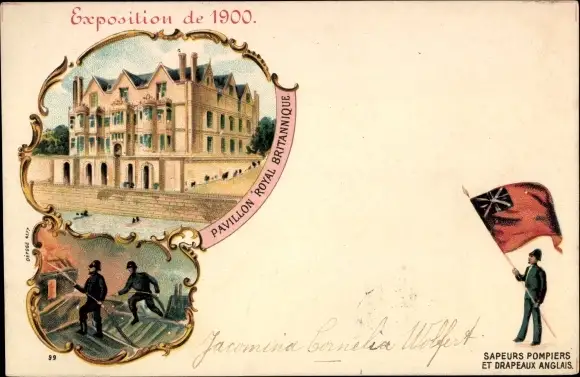 Exposition de 1900.
PAVILLON ROYAL BRITANNIQUE
DÉPOSÉ
99
Jacomina Cornelia Wolfert.
SAPEURS POMPIERS
ET DRAPEAUX ANGLAIS.